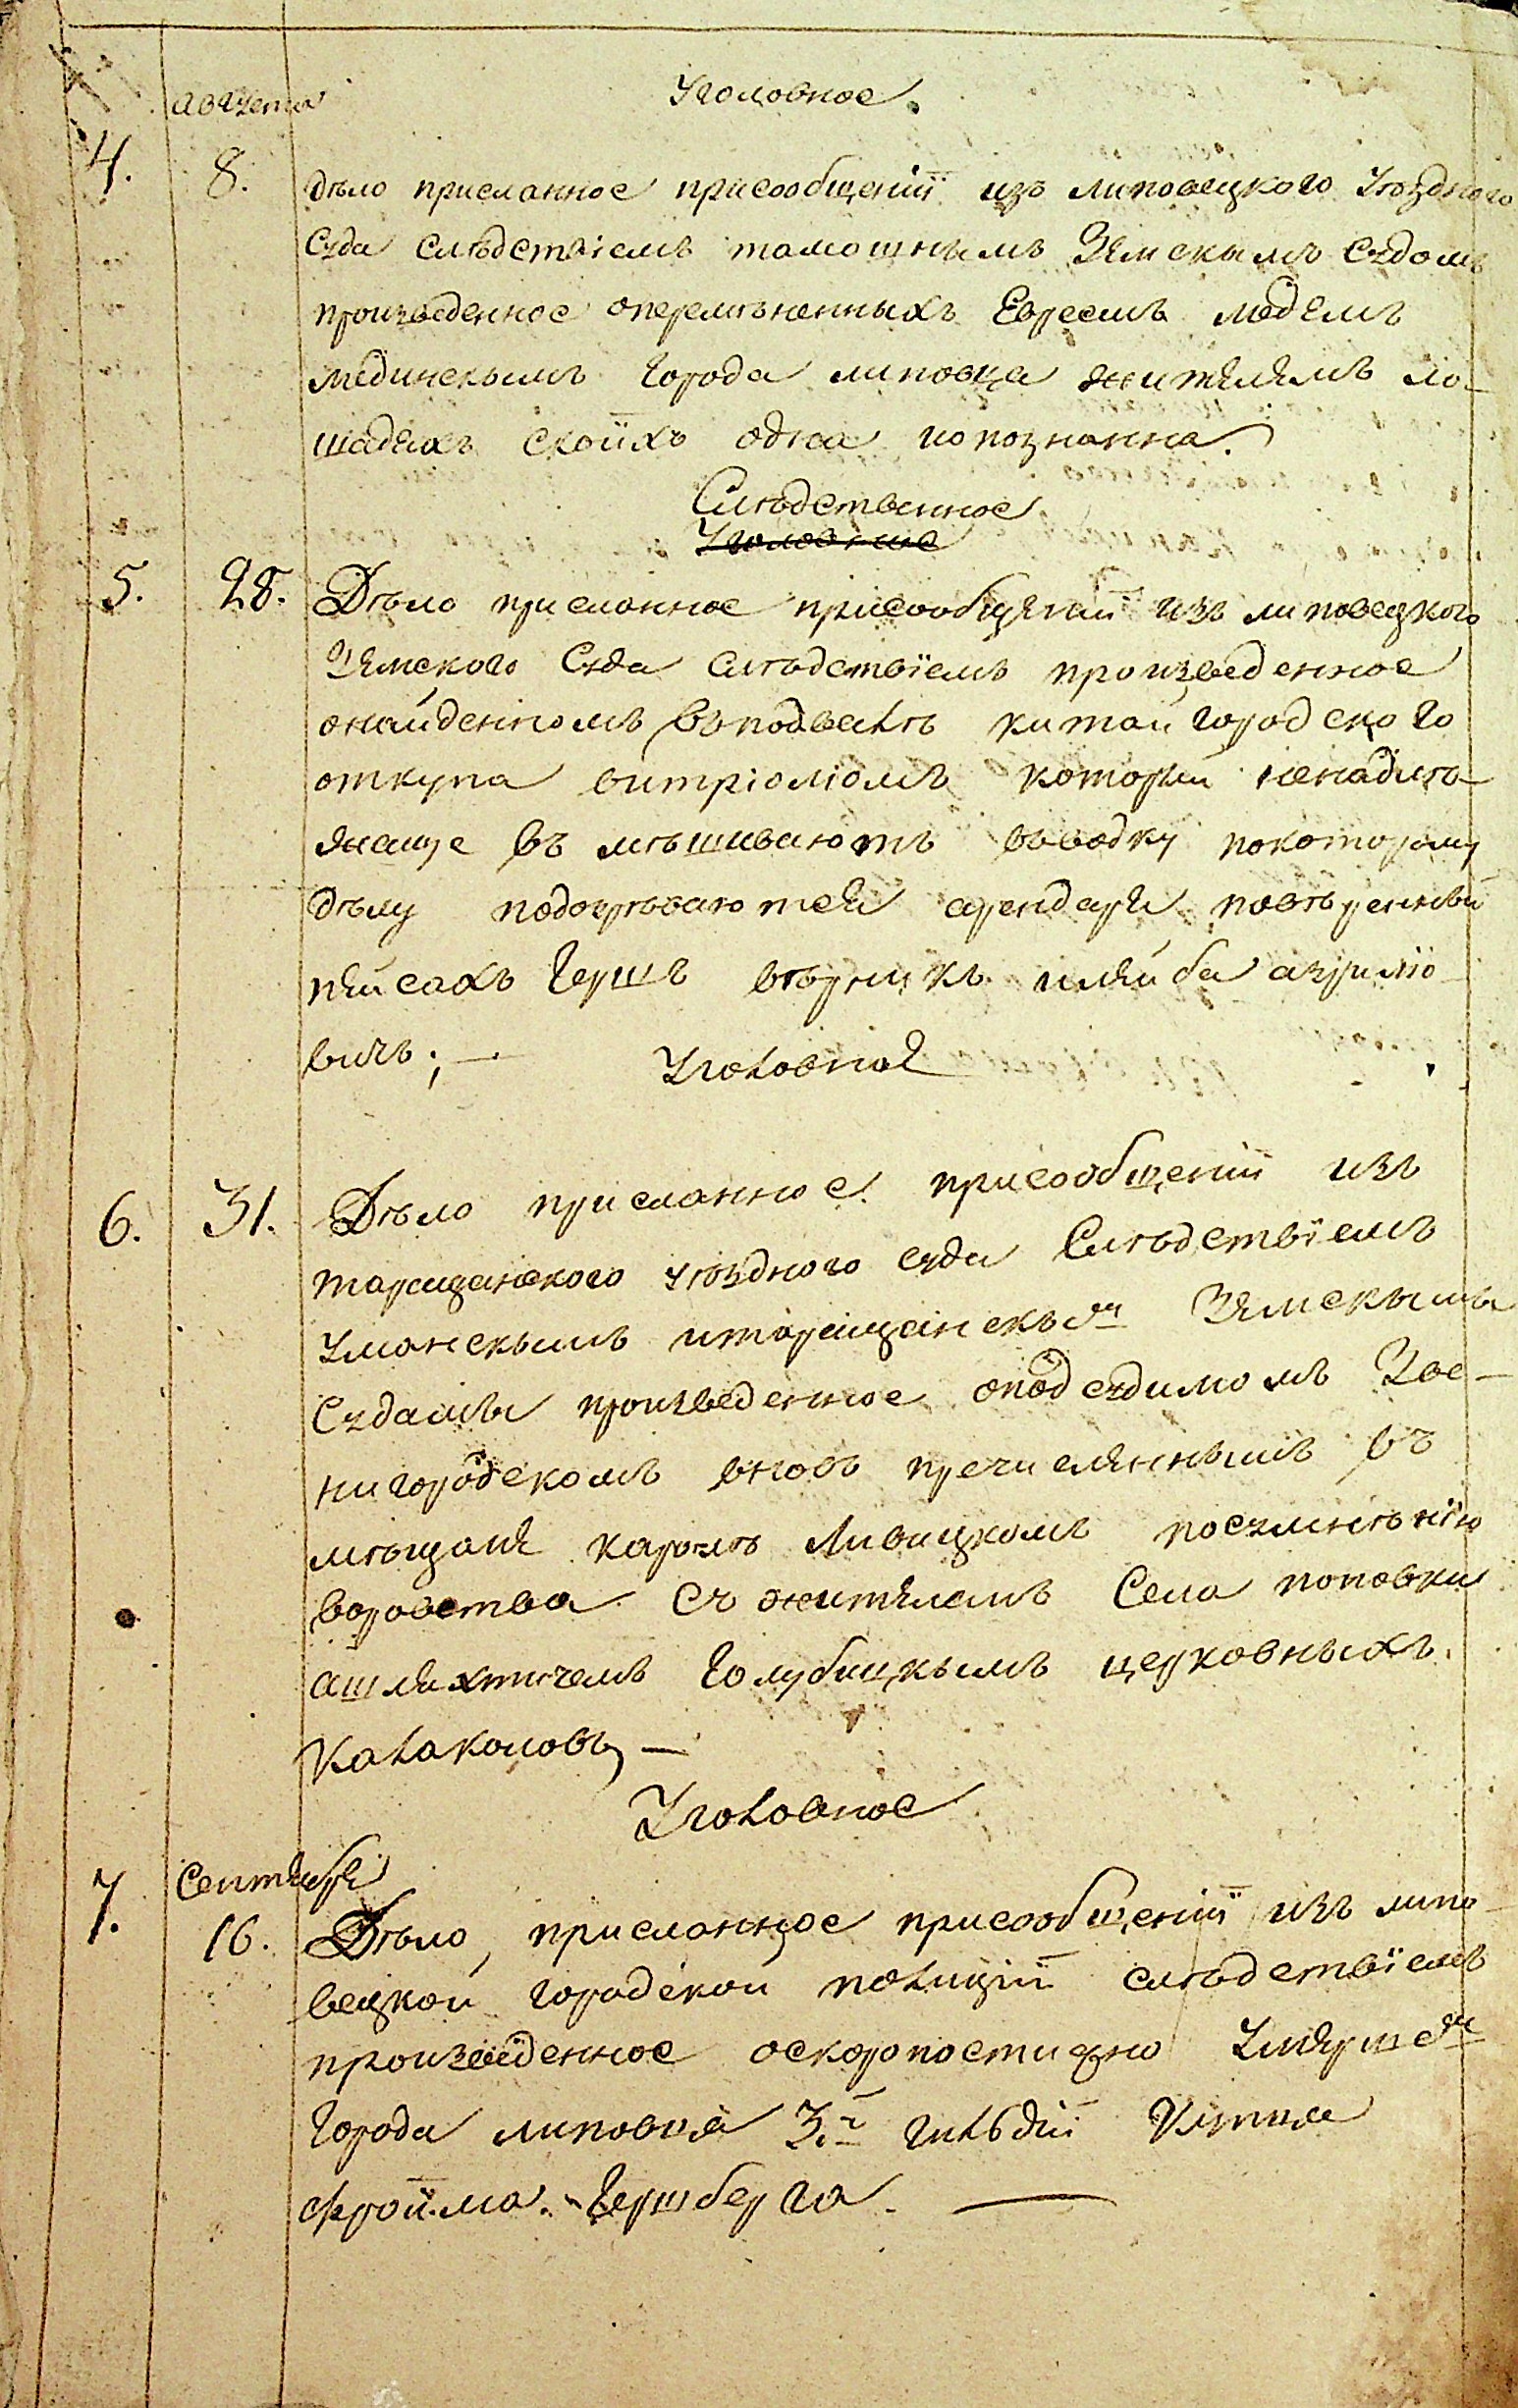 Августа
Уголовное.
4. 8. дѣло присланное присообщеніи изъ липовецкого уѣздного
Суда Слѣдствіемъ тамошнымъ Земскымъ Судомъ
произведенное оперемѣненныхъ Евреемъ медемъ
мединскымъ города липовца жителямъ ло-
шадяхъ скоихъ одна иопознанна.
Слѣдственное
Уголовное
5. 28. Дѣло присланное присообщеніи изъ липовецкого
Земского Суда Слѣдствіемъ произведенное
онайденномъ въподвалѣ китайгородского
откупа витріоліомъ которіи ненадлѣ-
жаще въ мѣшиваютъ вьводку покоторому
дѣлу подозрѣваются арендаря повѣренныи
пейсахъ Гершъ вѣрникъ илейба азриліо
вичъ; —
Уголовное
6. 31. Дѣло присланное присообщеніи изъ
таращанского уѣздного суда Слѣдствіемъ
Уманскымъ итаращанскымъ Земскымы
Судамы произведенное оподсудимомъ Зве-
нигородскомъ вновь пречисленнымъ въ
мѣщане каролѣ Ливицкомъ посумнѣнію
воровства съ жителемъ Села поповки
ашляхтичемъ Голубицкымъ церковныхъ
Калаколовъ, —
Уголовное
Сентября
7. 16. Дѣло присланное присообщеніи изъ липо-
вецкой городской полиціи слѣдствіемъ
произведенное оскоропостижно Умершемъ
города липовця 3.й гильдіи Купця
Фроима Гершберга. —